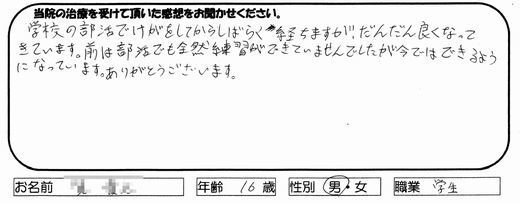 当院の治療を受けて頂いた感想をお聞かせください。
学校の部活でけがをしてからしばらく経ちますが、だんだん良くなって
きています。前は部活でも全然練習ができていませんでしたが今ではできるよう
になっています。ありがとうございます。
お名前 年齢 16 歳 性別 男・女 職業 学生